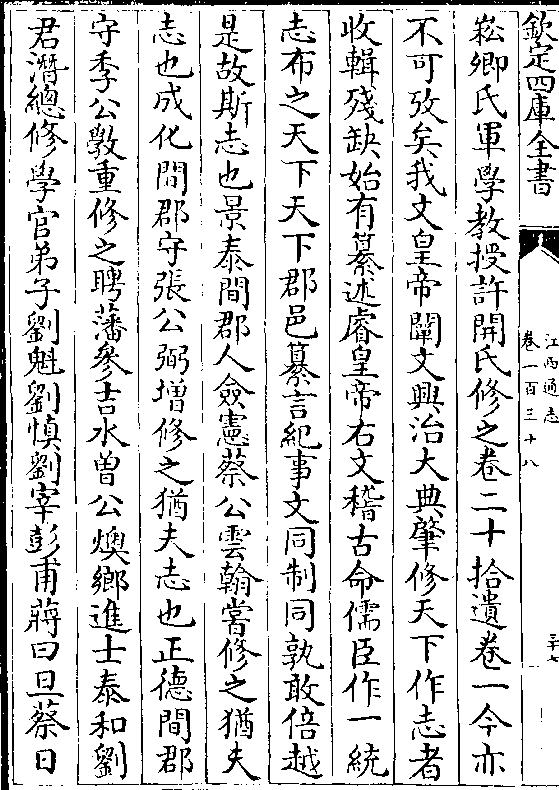 欽定四庫全書
江西通志
卷一百三十八
崧卿氏軍學教授許開氏修之卷二十拾遺卷一今亦
不可攷矣我文皇帝闡文興治大典肇修天下作志者
收輯殘缺始有纂述睿皇帝右文稽古命儒臣作一統
志布之天下天下郡邑纂言紀事文同制同孰敢倍越
是故斯志也景泰間郡人僉憲蔡公雲翰嘗修之猶夫
志也成化間郡守張公弼增修之猶夫志也正德間郡
守季公斆重修之聘藩參吉水曽公燠鄉進士泰和劉
君潛總修學官弟子劉魁劉慎劉宰彭甫蔣曰旦蔡日